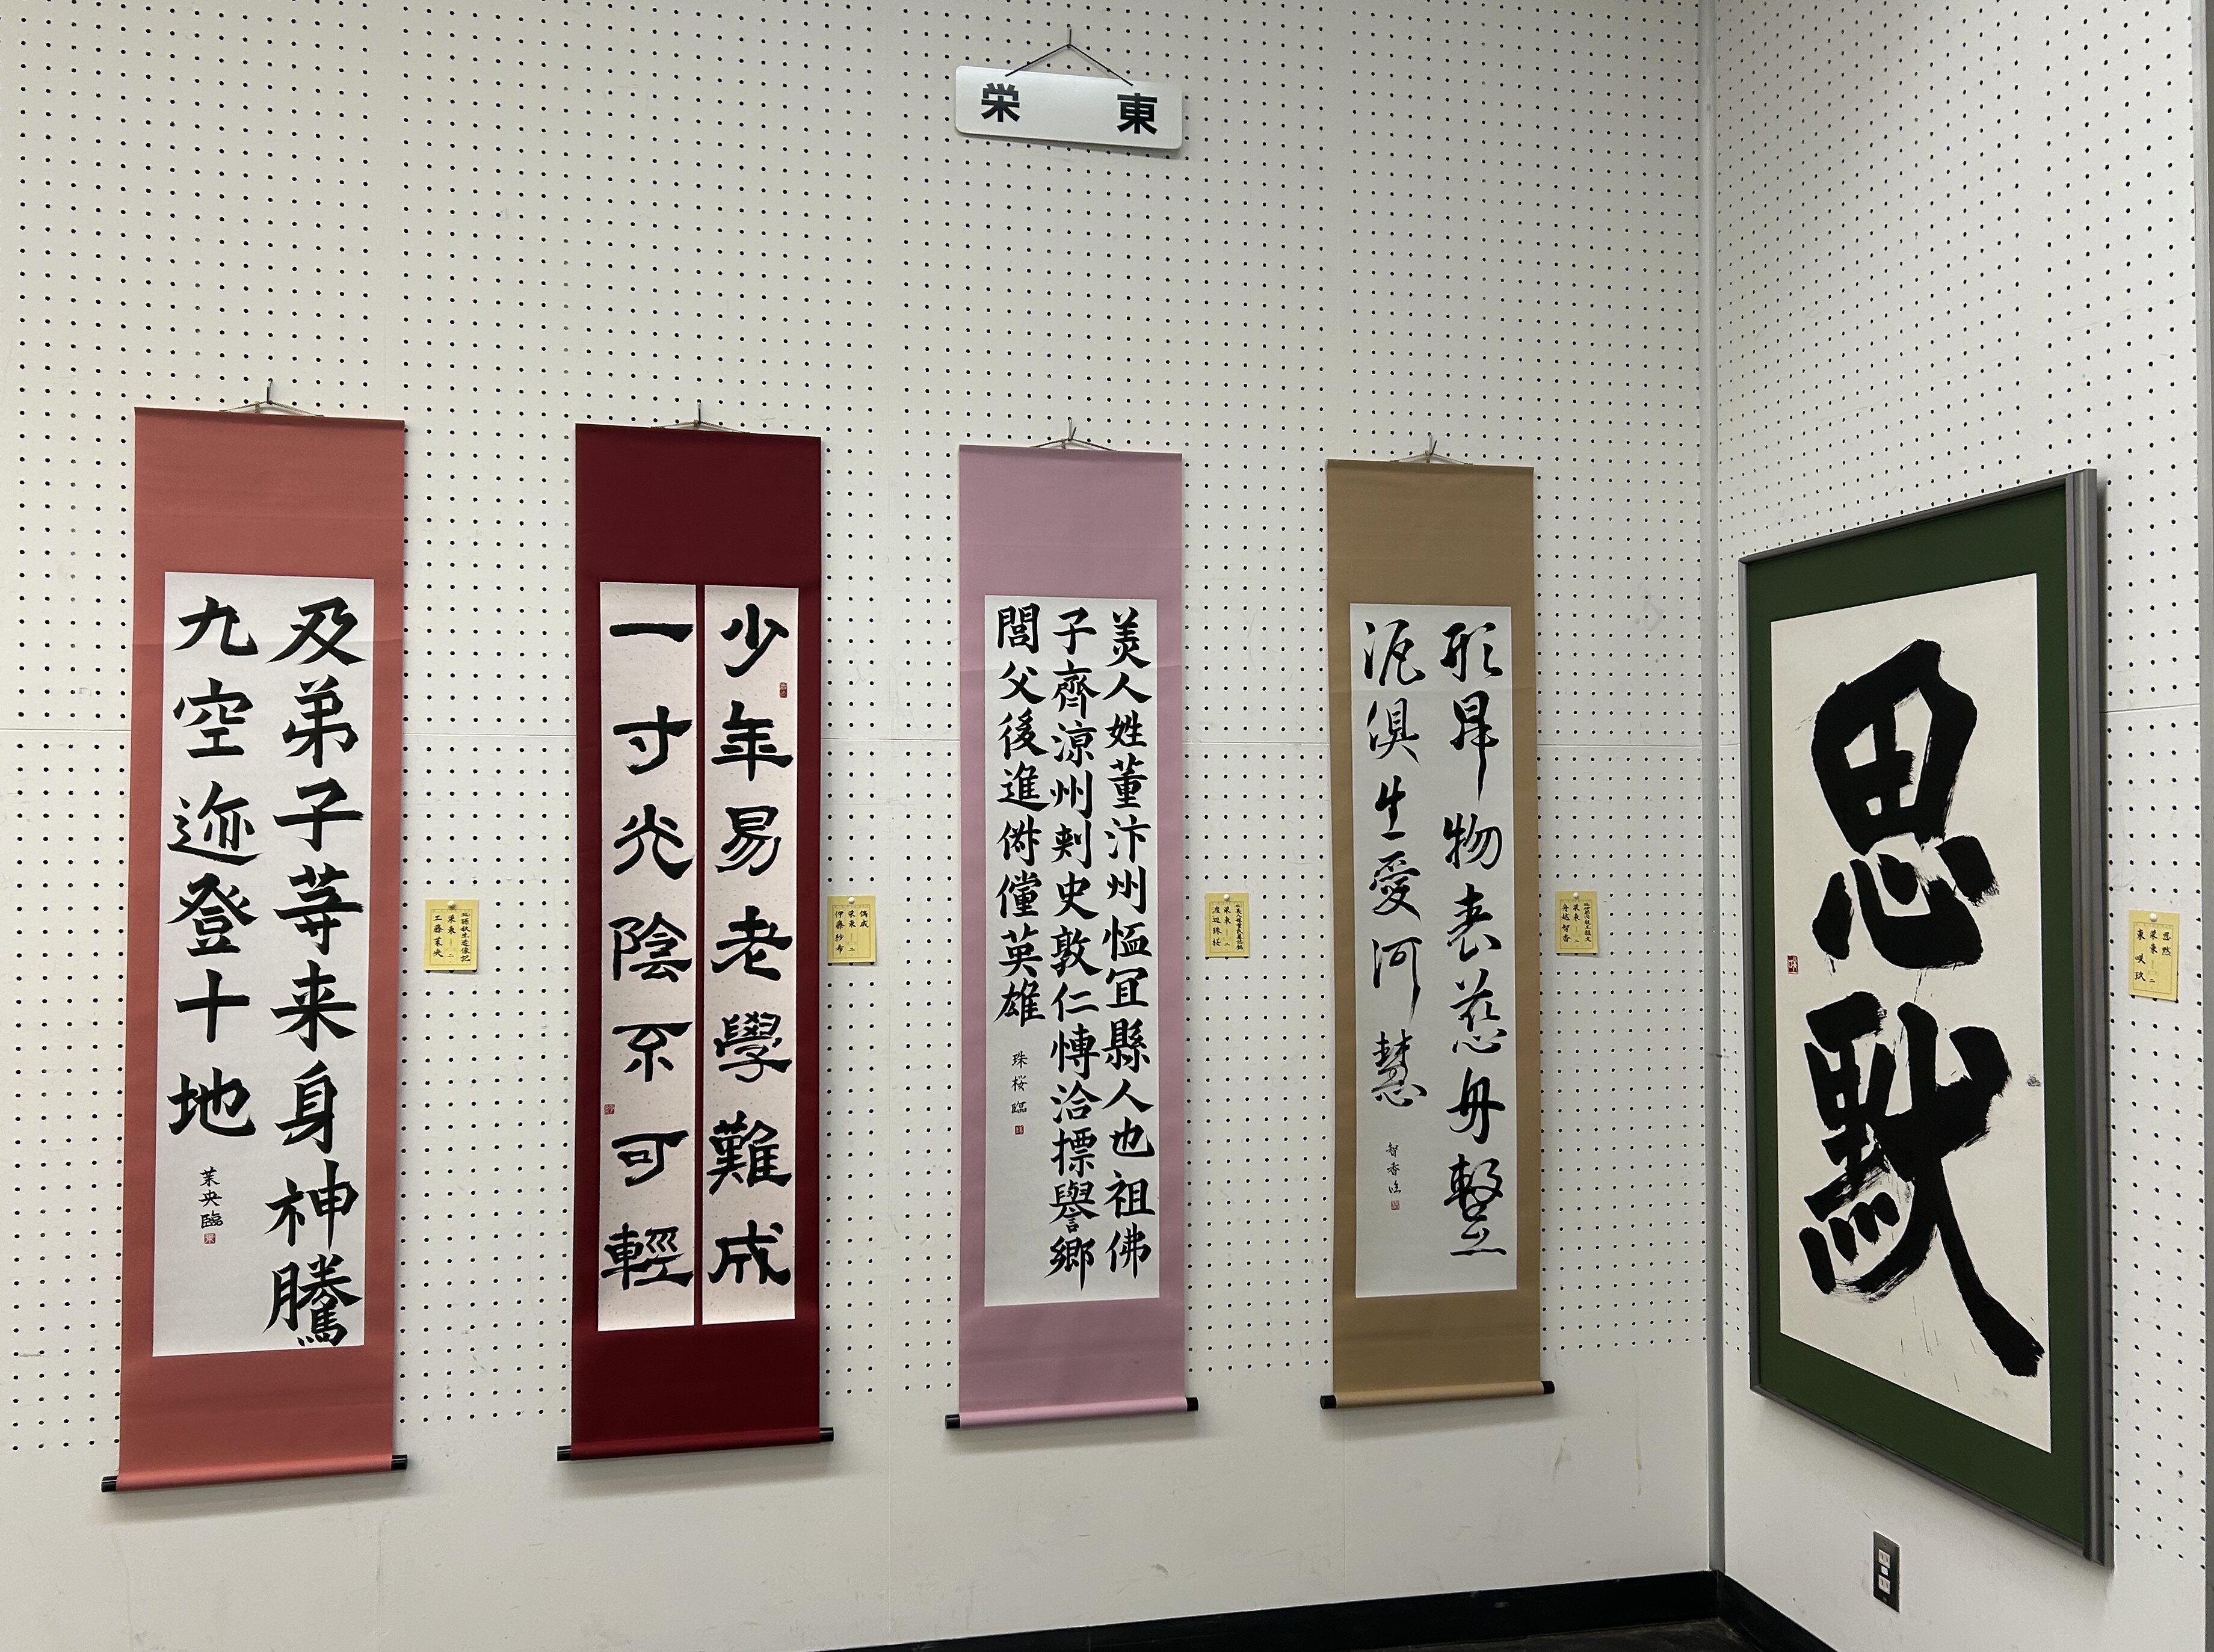 栄東
及弟子等来身神騰
九空迹登十地
茉央臨
孫秋生造像記
栄東 二
工藤茉央
少年易老學難成
一寸光陰不可輕
偶成
栄東 二
美人姓董汴州恤宜縣人也祖佛
子齊涼州刺史敦仁博洽標譽郷
閭父後進俶儻英雄
珠桜臨
栄東 二
渡辺珠桜
形昇物表慈舟
俱生愛河慧
智香臨
栄東 二
舟越智香
思黙
思黙
栄東 二
東咲玖